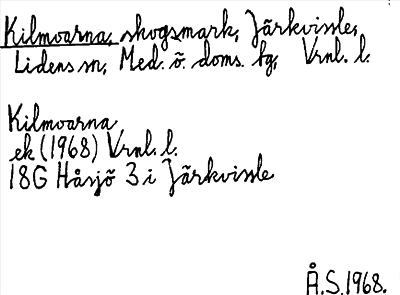 Kilmoarna, skogsmark, Järkvissle,
Lidens sn, Med. ö. doms. fg, Vrnl. l.
Kilmoarna
ek (1968) Vrnl. l.
18G Håsjö 3 i Järkvissle
Å.S. 1968.